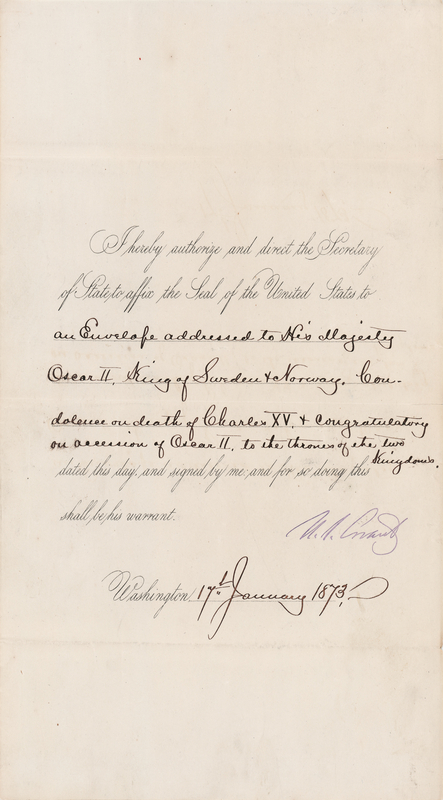 I hereby authorize and direct the Secretary
of State to affix the Seal of the United States to
an Envelope addressed to His Majesty
Oscar II, King of Sweden & Norway. Con-
dolence on death of Charles XV, & congratulatory
on accession of Oscar II, to the thrones of the two
Kingdoms.
dated this day, and signed by me and for so doing this
shall be his warrant.
U. S. Grant
Washington 17th January 1873.